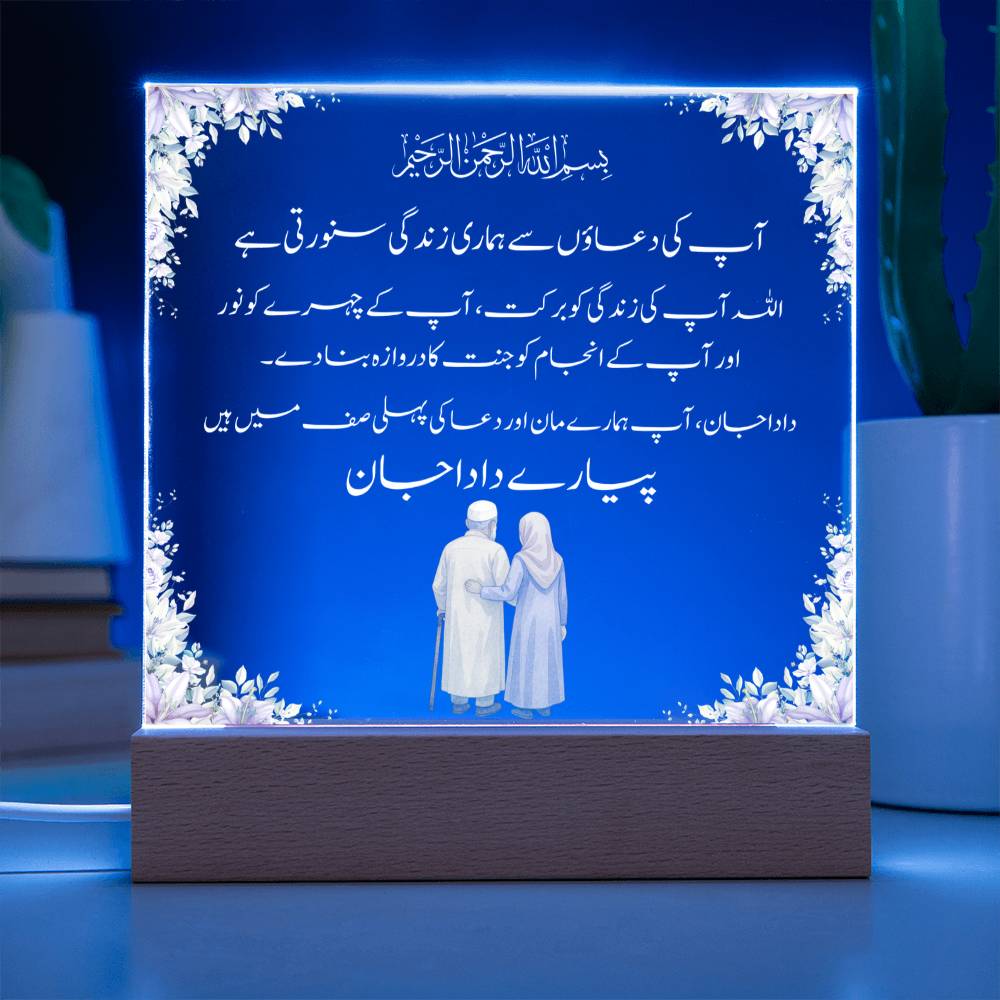 بِسْمِ اللّٰهِ الرَّحْمٰنِ الرَّحِيْمِ
آپ کی دعاؤں سے ہماری زندگی سنورتی ہے
اللہ آپ کی زندگی کو برکت، آپ کے چہرے کو نور
اور آپ کے انجام کو جنت کا دروازہ بنا دے۔
دادا جان، آپ ہمارے مان اور دعا کی پہلی صف میں ہیں
پیارے دادا جان